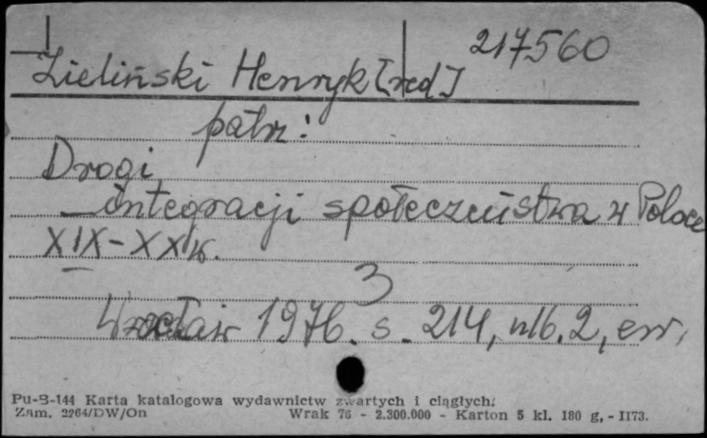 217560
Zieliński Henryk [red]
patrz:
Drogi
integracji społeczeństwa w Polsce
XIX-XX w.
3
Wrocław 1976. s. 214, nlb. 2, err.
Pu-B-144 Karta katalogowa wydawnictw zwartych i ciągłych.
Zam. 2264/DW/On Wrak 76 - 2.300.000 - Karton 5 kl. 180 g, - II73.